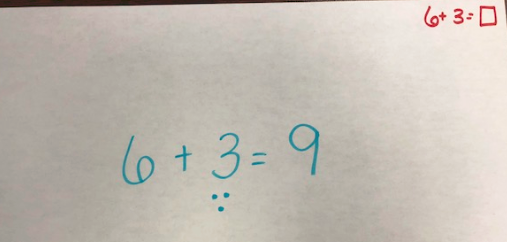 6+ 3 = □
6 + 3 = 9